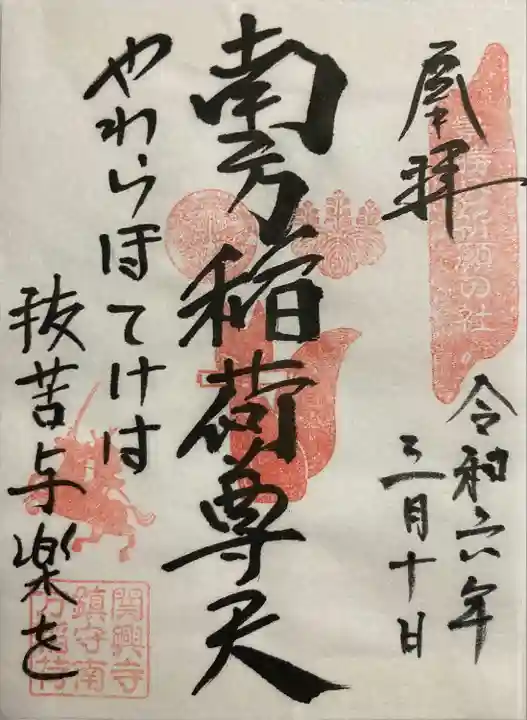 奉拝
令和六年
三月十日
南方稲荷尊天
やわらぼてけは
抜苦与楽を
関興寺
鎮守南
方稲荷